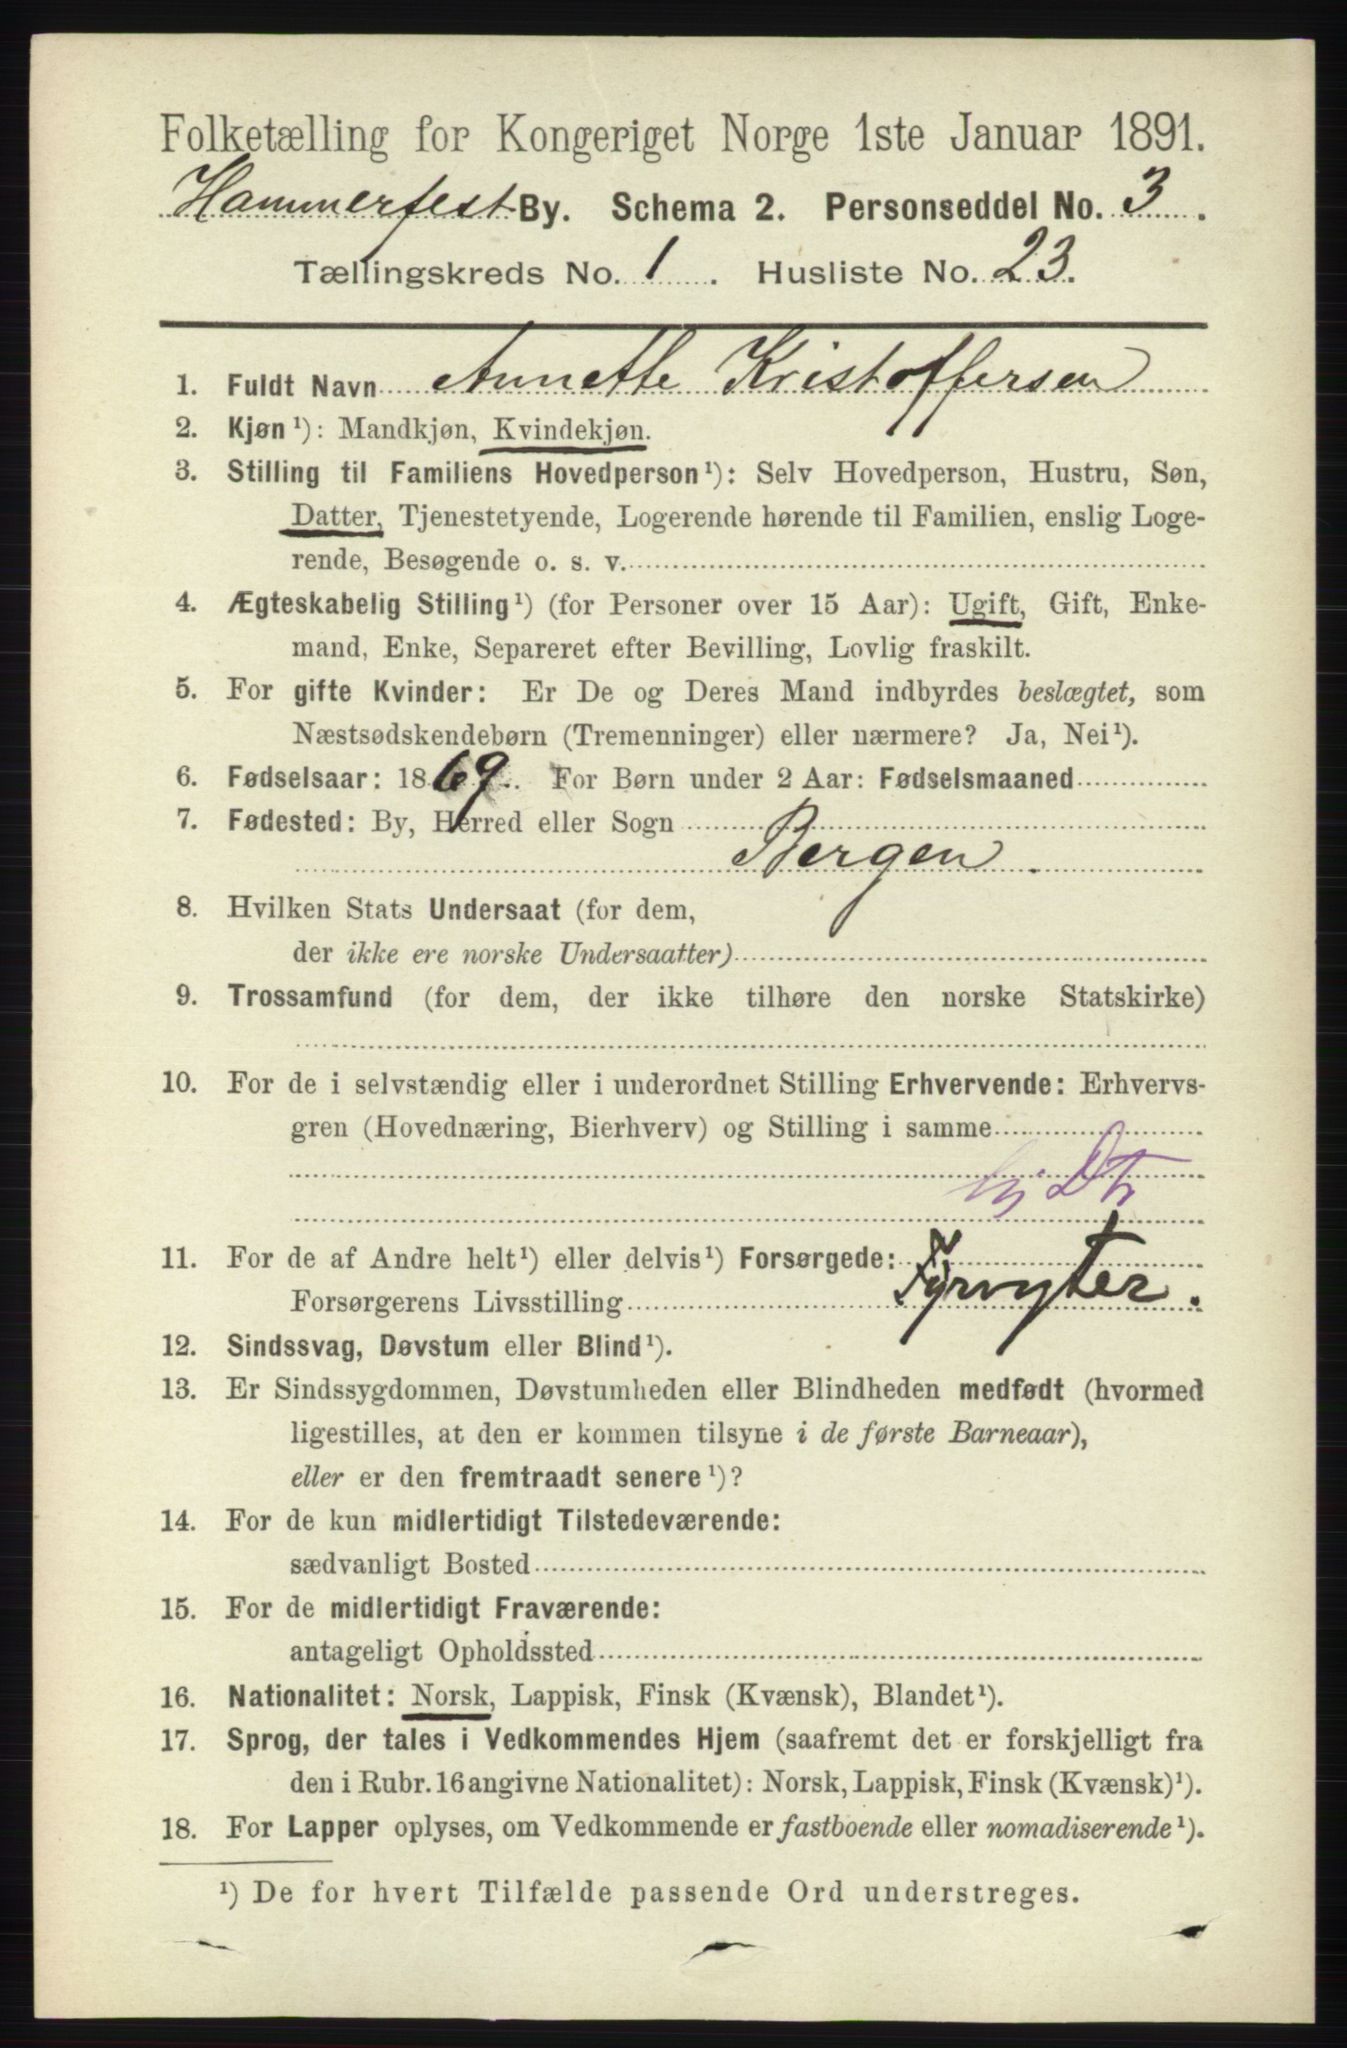 Folketælling for Kongeriget Norge 1ste Januar 1891.
Hammerfest By. Schema 2. Personseddel No. 3.
Tællingskreds No. 1. Husliste No. 23.
1. Fuldt Navn Annette Kristoffersen
2. Kjøn¹): Mandkjøn, Kvindekjøn.
3. Stilling til Familiens Hovedperson¹): Selv Hovedperson, Hustru, Søn,
Datter, Tjenestetyende, Logerende hørende til Familien, enslig Loge-
rende, Besøgende o. s. v.
4. Ægteskabelig Stilling¹) (for Personer over 15 Aar): Ugift, Gift, Enke-
mand, Enke, Separeret efter Bevilling, Lovlig fraskilt.
5. For gifte Kvinder: Er De og Deres Mand indbyrdes beslægtet, som
Næstsødskendebørn (Tremenninger) eller nærmere? Ja, Nei¹).
6. Fødselsaar: 1869. For Børn under 2 Aar: Fødselsmaaned
7. Fødested: By, Herred eller Sogn
Bergen.
8. Hvilken Stats Undersaat (for dem,
der ikke ere norske Undersaatter)
9. Trossamfund (for dem, der ikke tilhøre den norske Statskirke)
10. For de i selvstændig eller i underordnet Stilling Erhvervende: Erhvervs-
gren (Hovednæring, Bierhverv) og Stilling i samme
Dtr
11. For de af Andre helt¹) eller delvis¹) Forsørgede:
Forsørgerens Livsstilling Fyrvgter.
12. Sindssvag, Døvstum eller Blind¹).
13. Er Sindssygdommen, Døvstumheden eller Blindheden medfødt (hvormed
ligestilles, at den er kommen tilsyne i de første Barneaar),
eller er den fremtraadt senere¹)?
14. For de kun midlertidigt Tilstedeværende:
sædvanligt Bosted
15. For de midlertidigt Fraværende:
antageligt Opholdssted
16. Nationalitet: Norsk, Lappisk, Finsk (Kvænsk), Blandet¹).
17. Sprog, der tales i Vedkommendes Hjem (saafremt det er forskjelligt fra
den i Rubr. 16 angivne Nationalitet): Norsk, Lappisk, Finsk (Kvænsk)¹).
18. For Lapper oplyses, om Vedkommende er fastboende eller nomadiserende¹).
¹) De for hvert Tilfælde passende Ord understreges.